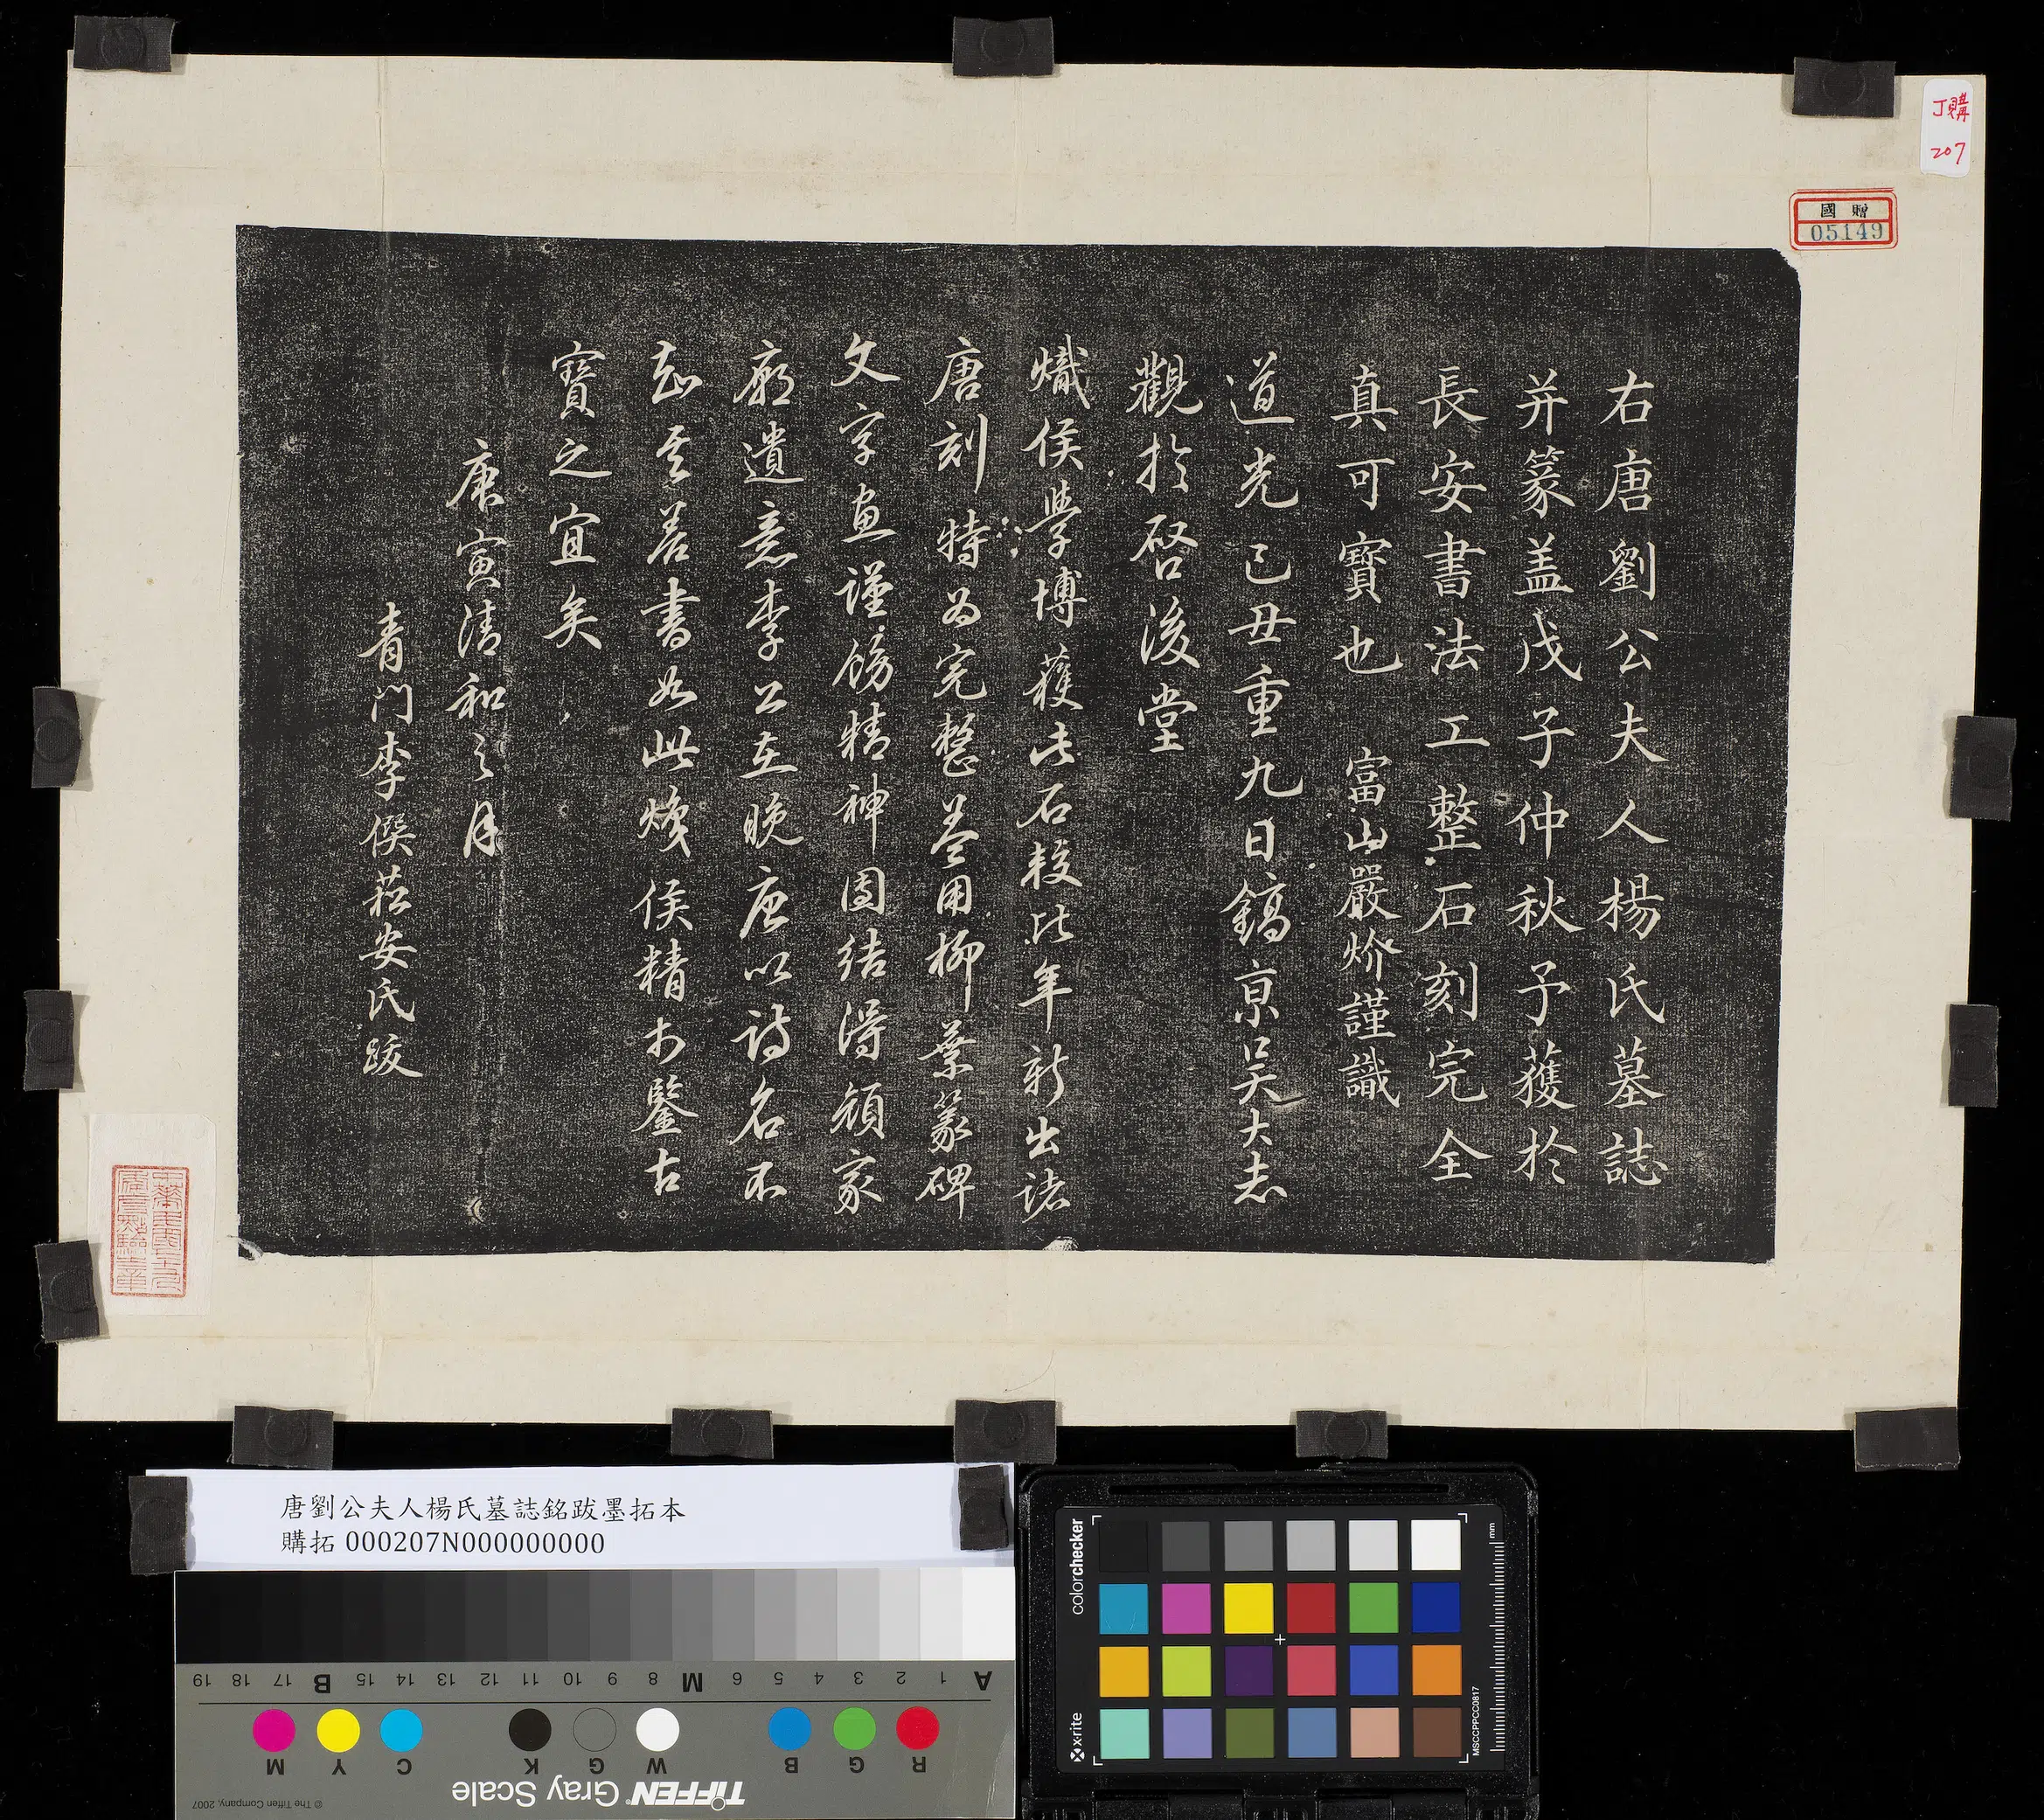 右唐劉公夫人楊氏墓誌
并篆盖戊子仲秋予獲於
長安書法工整石刻完全
真可寶也 富山嚴炌謹識
道光己丑重九日鎬京吴大志
觀於啓後堂
熾侯學博獲此石較比年新出諸
唐刻特為完整蓋用柳葉篆碑
文字畫謹飭精神團結得顏家
廟遺意李公在晚唐以詩名不
知其善書如此熾侯精於鑒古
寶之宜矣
庚寅清和之月
青門李僎菘安氏跋
丁購
207
國贈
05149
唐劉公夫人楊氏墓誌銘跋墨拓本
購拓 000207N000000000
A 1 2 3 4 5 6 M 8 9 10 11 12 13 14 15 B 17 18 19
R G B W G K C Y M
TIFFEN Gray Scale
© The Tiffen Company, 2007
colorchecker
x-rite
mm
MSCCPPCC0817